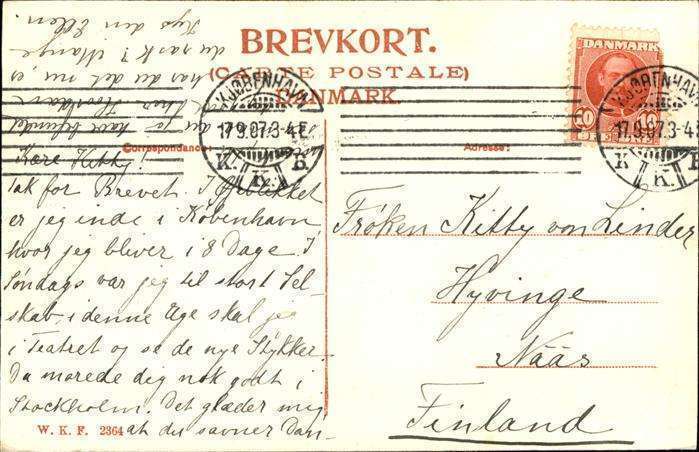 BREVKORT.
(CARTE POSTALE)
DANMARK
DANMARK
10 10
KJØBENHAVN
17.9.07.3-4E
K. K. B.
KJØBENHAVN
17.9.07.3-4E
K K.
Correspondance:
Adresse:
Kære Kitty!
Tak for Brevet. I Øjeblikket
er jeg inde i København
hvor jeg bliver i 8 Dage. I
Søndags var jeg til stort Sel-
skab i denne Uge skal jeg
i Teatret og se de nye Stykker.
Du morede dig nok godt i
Stockholm. Det glæder mig
at du savner Dan-
du rask? Mange
Kys din Ellen.
Frøken Kitty von Linder
Hyvinge
Nääs
Finland
W. K. F. 2364